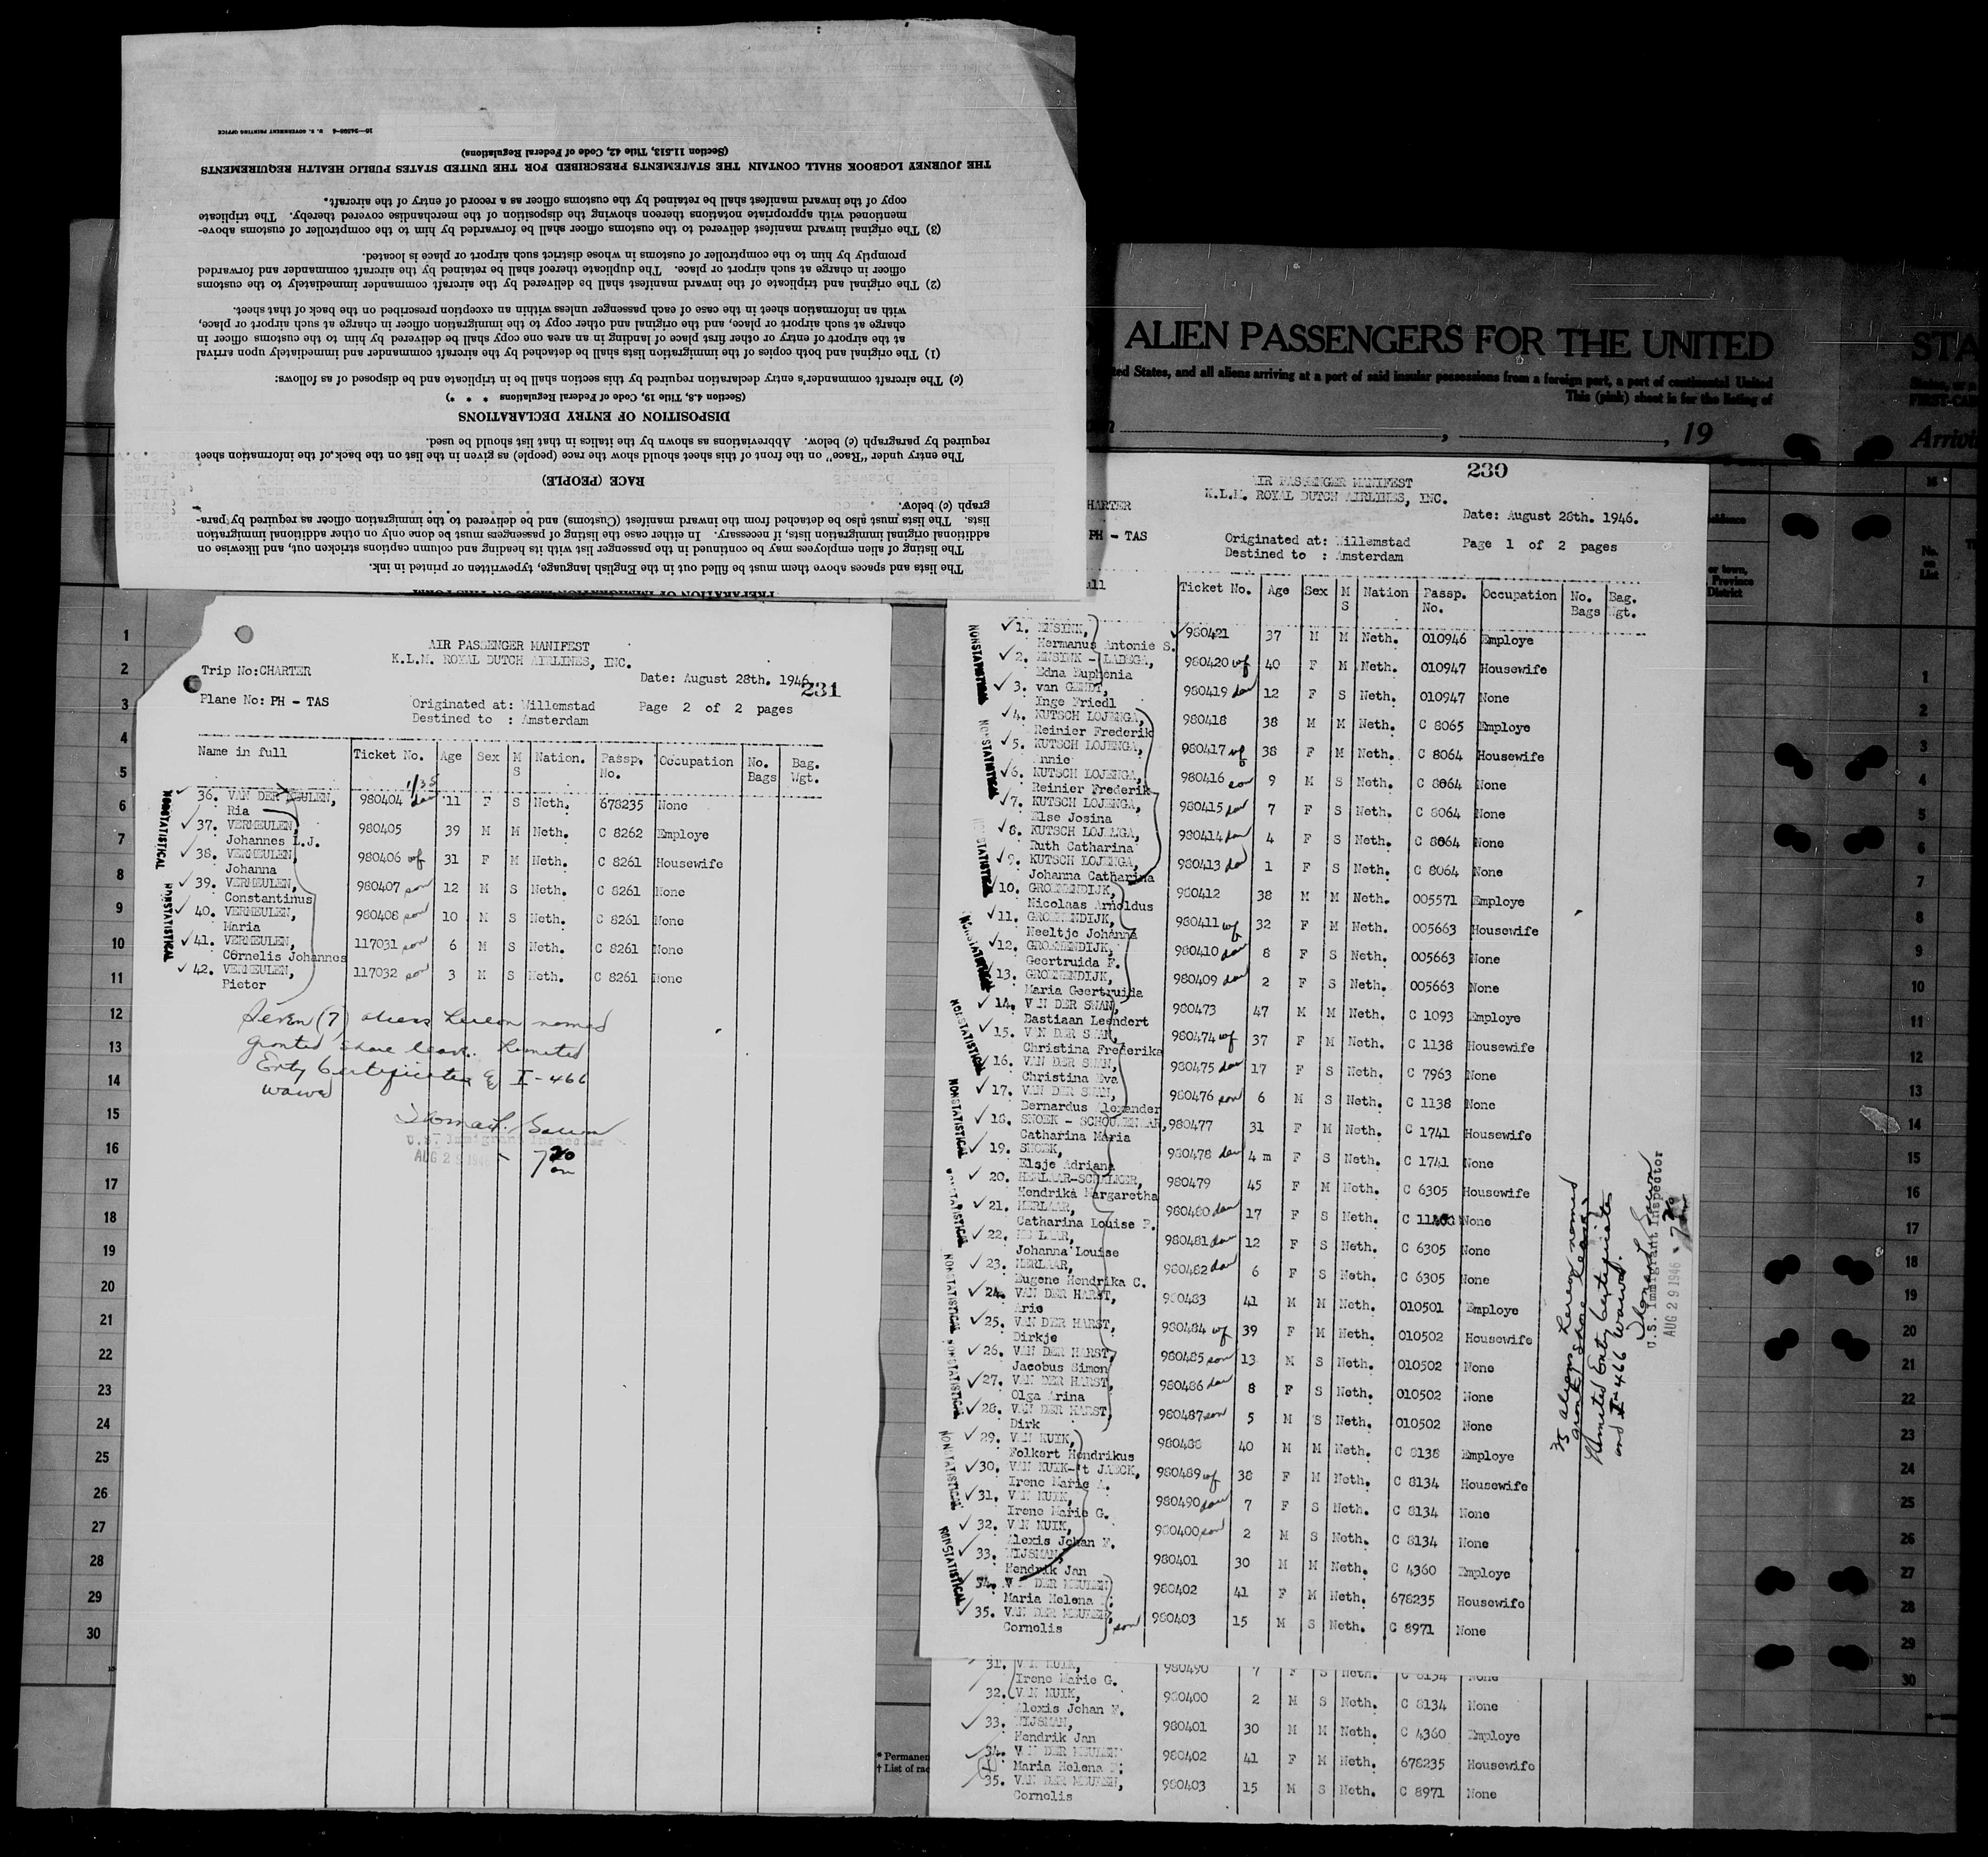 PREPARATION OF IMMIGRATION LISTS ON THIS FORM
The lists and spaces above them must be filled out in the English language, typewritten or printed in ink.
The listing of alien employees may be continued in the passenger list with its heading and column captions stricken out, and likewise on
additional original immigration lists, if necessary. In either case the listing of passengers must be done only on other additional immigration
lists. The lists must also be detached from the inward manifest (Customs) and be delivered to the immigration officer as required by para-
graph (c) below.
RACE (PEOPLE)
The entry under "Race" on the front of this sheet should show the race (people) as given in the list on the back of the information sheet
required by paragraph (c) below. Abbreviations as shown by the italics in that list should be used.
DISPOSITION OF ENTRY DECLARATIONS
(Section 4.8, Title 19, Code of Federal Regulations * * *)
(c) The aircraft commander's entry declaration required by this section shall be in triplicate and be disposed of as follows:
(1) The original and both copies of the immigration lists shall be detached by the aircraft commander and immediately upon arrival
at the airport of entry or other first place of landing in an area one copy shall be delivered by him to the customs officer in
charge at such airport or place, and the original and other copy to the immigration officer in charge at such airport or place,
with an information sheet in the case of each passenger unless within an exception prescribed on the back of that sheet.
(2) The original and triplicate of the inward manifest shall be delivered by the aircraft commander immediately to the customs
officer in charge at such airport or place. The duplicate thereof shall be retained by the aircraft commander and forwarded
promptly by him to the comptroller of customs in whose district such airport or place is located.
(3) The original inward manifest delivered to the customs officer shall be forwarded by him to the comptroller of customs above-
mentioned with appropriate notations thereon showing the disposition of the merchandise covered thereby. The triplicate
copy of the inward manifest shall be retained by the customs officer as a record of entry of the aircraft.
THE JOURNEY LOGBOOK SHALL CONTAIN THE STATEMENTS PRESCRIBED FOR THE UNITED STATES PUBLIC HEALTH REQUIREMENTS
(Section 11.513, Title 42, Code of Federal Regulations)
U. S. GOVERNMENT PRINTING OFFICE
ALIEN PASSENGERS FOR THE UNITED STA
ted States, and all aliens arriving at a port of said insular possessions from a foreign port, a port of continental United
This (pink) sheet is for the listing of
, , 19
AIR PASSENGER MANIFEST
K.L.M. ROYAL DUTCH AIRLINES, INC.
Trip No: CHARTER
Date: August 28th. 1946.
231
Plane No: PH - TAS
Originated at: Willemstad
Page 2 of 2 pages
Destined to : Amsterdam
Name in full Ticket No. Age Sex M S Nation. Passp. No. Occupation No. Bags Bag. Wgt.
36. VAN DER MEULEN, 980404 dau 11 F S Neth. 678235 None
Ria
37. VERMEULEN, 980405 39 M M Neth. C 8262 Employe
Johannes L.J.
38. VERMEULEN, 980406 wf 31 F M Neth. C 8261 Housewife
Johanna
39. VERMEULEN, 980407 son 12 M S Neth. C 8261 None
Constantinus
40. VERMEULEN, 980408 son 10 M S Neth. C 8261 None
Maria
41. VERMEULEN, 117031 son 6 M S Neth. C 8261 None
Cornelis Johannes
42. VERMEULEN, 117032 son 3 M S Neth. C 8261 None
Pieter
NONSTATISTICAL
NONSTATISTICAL
Seven (7) aliens hereon named
granted shore leave. Limited
Entry Certificates & I-466
waived
U.S. Immigrant Inspector
AUG 29 1946 - 7 20 am
230
AIR PASSENGER MANIFEST
K.L.M. ROYAL DUTCH AIRLINES, INC.
HARTER
Date: August 28th. 1946.
PH - TAS
Originated at: Willemstad
Page 1 of 2 pages
Destined to : Amsterdam
ll Ticket No. Age Sex M S Nation Passp. No. Occupation No. Bags Bag. Wgt.
1. ENSINK, 980421 37 M M Neth. 010946 Employe
Hermanus Antonie S.
2. ENSINK - LABEGA, 980420 wf 40 F M Neth. 010947 Housewife
Edna Euphenia
3. van GENDT, 980419 dau 12 F S Neth. 010947 None
Inge Friedl
4. KUTSCH LOJENGA, 980418 38 M M Neth. C 8065 Employe
Reinier Frederik
5. KUTSCH LOJENGA, 980417 wf 38 F M Neth. C 8064 Housewife
Annie
6. KUTSCH LOJENGA, 980416 son 9 M S Neth. C 8064 None
Reinier Frederik
7. KUTSCH LOJENGA, 980415 dau 7 F S Neth. C 8064 None
Else Josina
8. KUTSCH LOJENGA, 980414 dau 4 F S Neth. C 8064 None
Ruth Catharina
9. KUTSCH LOJENGA, 980413 dau 1 F S Neth. C 8064 None
Johanna Catharina
10. GROENENDIJK, 980412 38 M M Neth. 005571 Employe
Nicolaas Arnoldus
11. GROENENDIJK, 980411 wf 32 F M Neth. 005663 Housewife
Neeltje Johanna
12. GROENENDIJK, 980410 dau 8 F S Neth. 005663 None
Geertruida F.
13. GROENENDIJK, 980409 dau 2 F S Neth. 005663 None
Maria Geertruida
14. VAN DER SMAN, 980473 47 M M Neth. C 1093 Employe
Bastiaan Leendert
15. VAN DER SMAN, 980474 wf 37 F M Neth. C 1138 Housewife
Christina Frederika
16. VAN DER SMAN, 980475 dau 17 F S Neth. C 7963 None
Christina Eva
17. VAN DER SMAN, 980476 son 6 M S Neth. C 1138 None
Bernardus Alexander
18. SNOEK - SCHOUTENAAR, 980477 31 F M Neth. C 1741 Housewife
Catharina Maria
19. SNOEK, 980478 dau 4 m F S Neth. C 1741 None
Elsje Adriana
20. HERLAAR-SCHELKER, 980479 45 F M Neth. C 6305 Housewife
Hendrika Margaretha
21. HERLAAR, 980480 dau 17 F S Neth. None
Catharina Louise P.
22. HERLAAR, 980481 dau 12 F S Neth. C 6305 None
Johanna Louise
23. HERLAAR, 980482 dau 6 F S Neth. C 6305 None
Eugene Hendrika C.
24. VAN DER HARST, 980483 41 M M Neth. 010501 Employe
Arie
25. VAN DER HARST, 980484 wf 39 F M Neth. 010502 Housewife
Dirkje
26. VAN DER HARST, 980485 son 13 M S Neth. 010502 None
Jacobus Simon
27. VAN DER HARST, 980486 dau 8 F S Neth. 010502 None
Olga Arina
28. VAN DER HARST, 980487 son 5 M S Neth. 010502 None
Dirk
29. VAN KUIK, 980488 40 M M Neth. C 8138 Employe
Folkert Hendrikus
30. VAN KUIK-'t JAECK, 980489 wf 38 F M Neth. C 8134 Housewife
Irene Marie A.
31. VAN KUIK, 980490 dau 7 F S Neth. C 8134 None
Irene Marie G.
32. VAN KUIK, 980400 son 2 M S Neth. C 8134 None
Alexis Johan F.
33. WIJSMAN, 980401 30 M M Neth. C 4360 Employe
Hendrik Jan
34. VAN DER MEULEN 980402 41 F M Neth. 678235 Housewife
Maria Helena
35. VAN DER MEULEN, son 980403 15 M S Neth. C 8971 None
Cornelis
NONSTATISTICAL
35 aliens hereon named
granted shore leave.
Limited Entry Certificates
and I-466 waived.
U.S. Immigrant Inspector
AUG 29 1946 - 7 20
31. VAN KUIK, 980490 7 F S Neth. C 8134 None
Irene Marie G.
32. VAN KUIK, 980400 2 M S Neth. C 8134 None
Alexis Johan F.
33. WIJSMAN, 980401 30 M M Neth. C 4360 Employe
Hendrik Jan
34. VAN DER MEULEN 980402 41 F M Neth. 678235 Housewife
Maria Helena
35. VAN DER MEULEN, 980403 15 M S Neth. C 8971 None
Cornelis
* Permanen
† List of rac